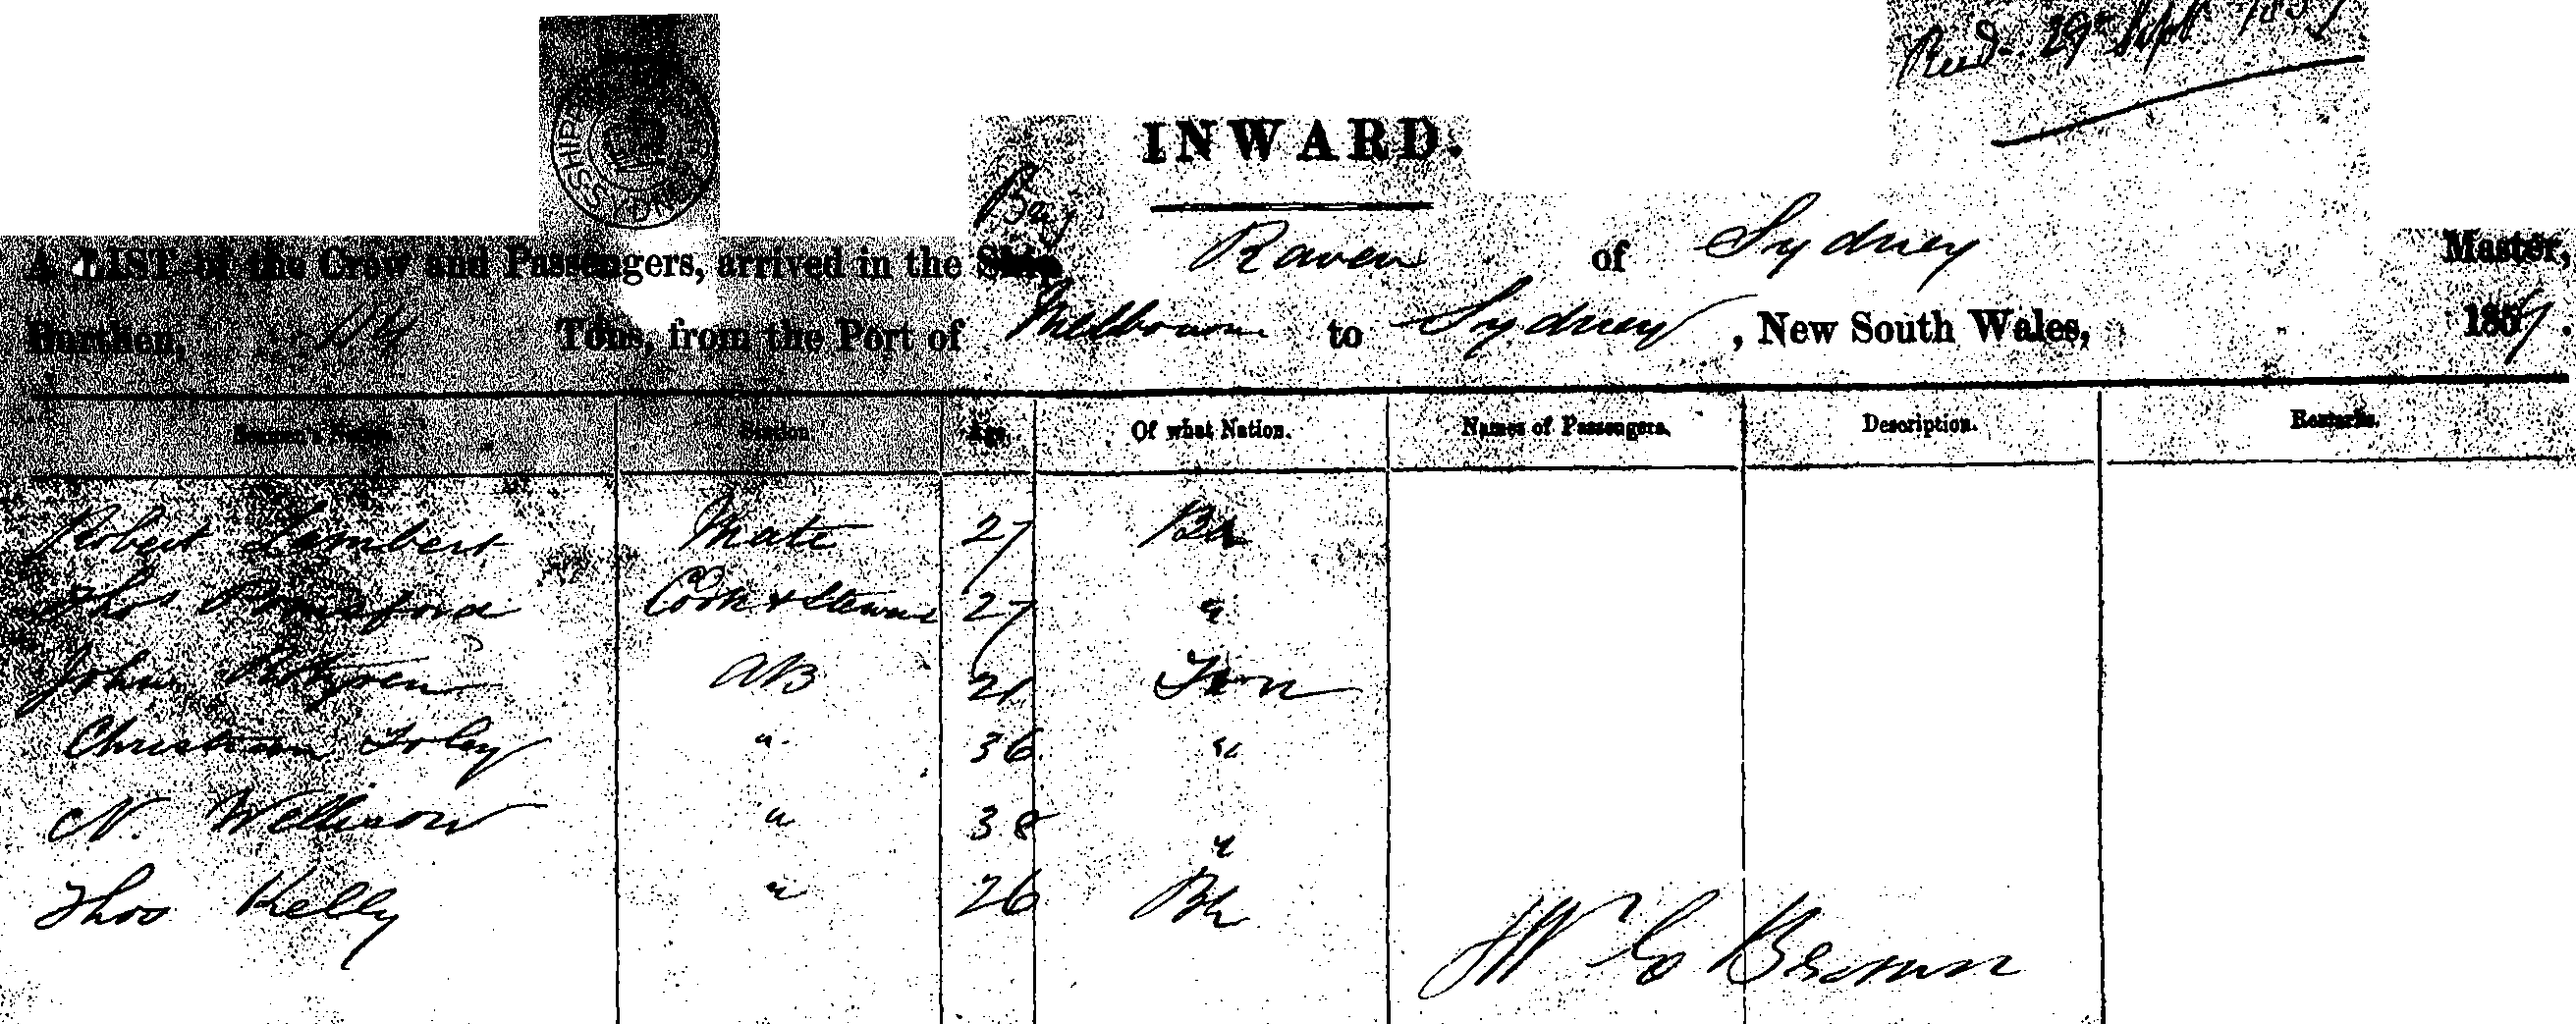 Recd. 29th Sept. 1857
SHIPP SYDNEY
INWARD.
A LIST of the Crew and Passengers, arrived in the Ship Raven of Sydney Master,
Burthen, Tons, from the Port of Melbourne to Sydney, New South Wales, 1867.
Seamen's Names. Station Age Of what Nation. Names of Passengers. Description. Remarks.
Robert Lambert Mate 27
Thos Cook & Steward 27 "
John AB 21
Christian Foley " 36 "
N. " 38 "
Thos Kelly " 26
Brown